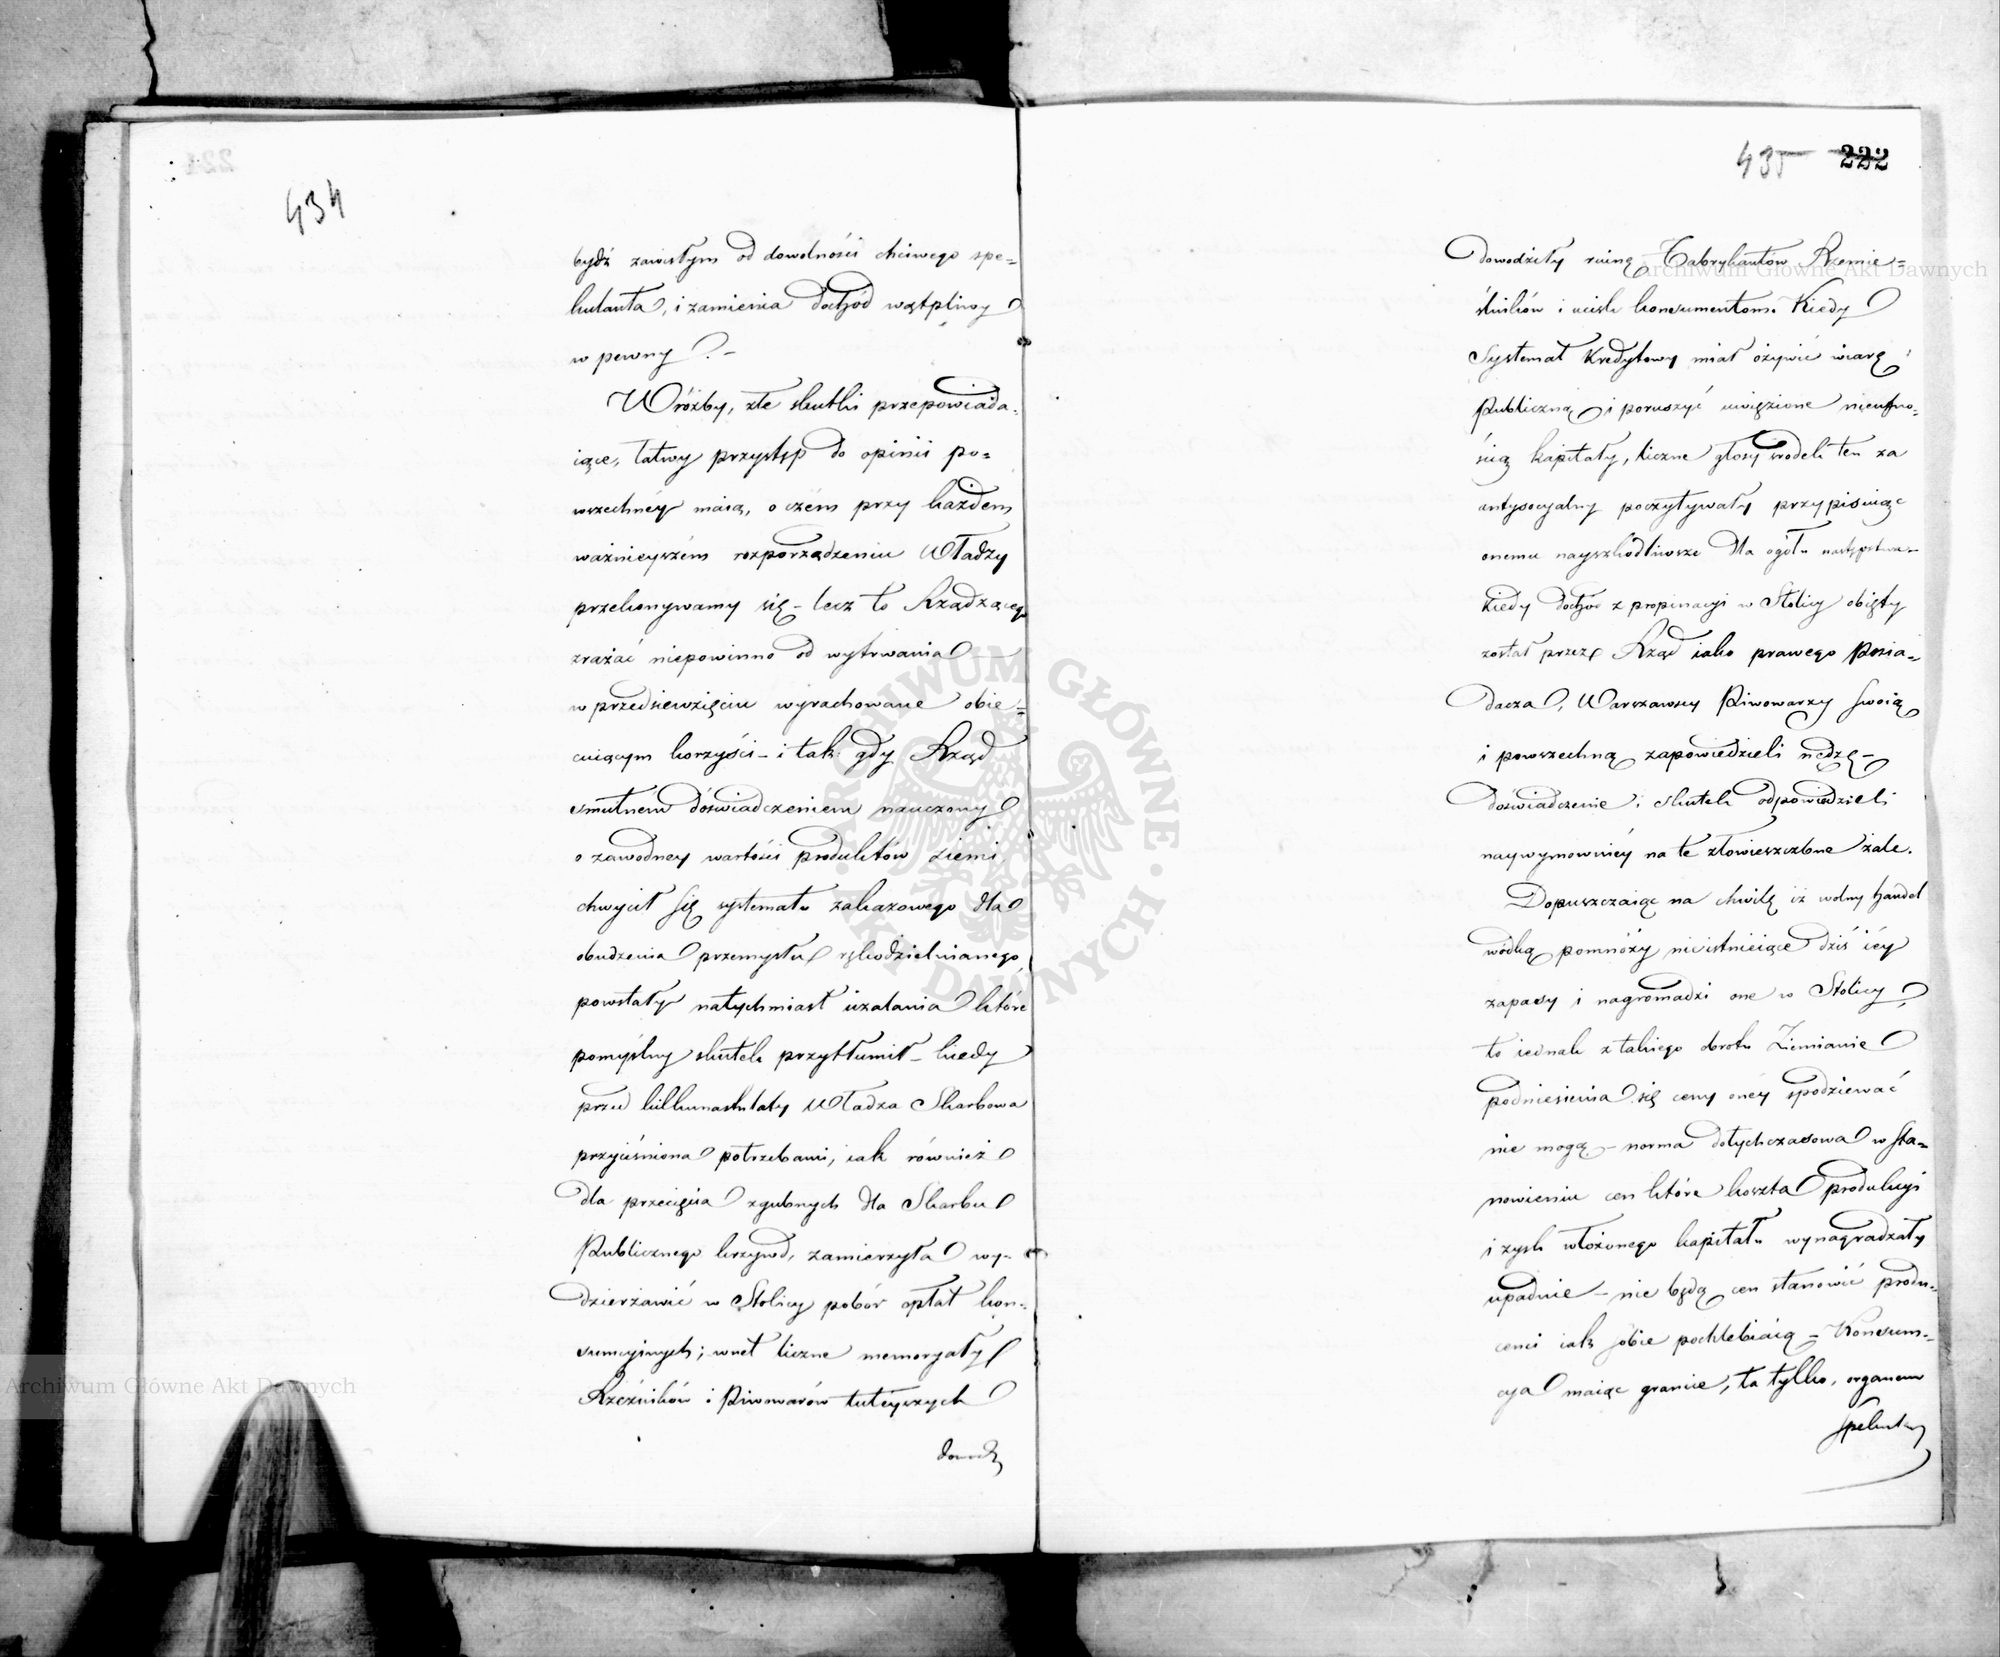 434
bydź zawisłym od dowolności chciwego spe=
kulanta, i zamienia dochód wątpliwy
w pewny ? –
Wróżby, złe skutki przepowiada=
iące, łatwy przystęp do opinii po=
wszechnéy maią, o czém przy każdem
ważnieyszém rozporządzeniu Władzy
przekonywamy się – lecz to Rządzącego
zrażać niepowinno od wytrwania
w przedsięwzięciu wyrachowane obie=
cuiącym korzyści – i tak gdy Rząd
smutném doświadczeniem nauczony
o zawodney wartości produktów ziemi
chwycił się systematu zakazowego dla
obudzenia przemysłu rękodzielnianego,
powstały natychmiast użalania które
pomyślny skutek przytłumił – kiedy
przed kilkunastu laty Władza Skarbowa
przyciśniona potrzebami, iak również
dla przecięcia zgubnych dla Skarbu
Publicznego krzywd, zamierzyła wy=
dzierżawić w Stolicy pobór opłat kon=
sumcyinych; wnet liczne memoryały
Rzeźników i Piwowarów tuteyszych
435 222
dowodziły ruinę Fabrykantów Rzemie=
ślników i ucisk konsumentom. Kiedy
Systemat Kredytowy miał ożywić wiarę
Publiczną i poruszyć uwięzione nieufno=
ścią kapitały, liczne głosy środek ten za
antysocyalny poczytywały przypisuiąc
onemu nayszkodliwsze dla ogółu następstwa –
Kiedy dochód z propinacyi w Stolicy obięty
został przez Rząd iako prawego Posia=
dacza, Warszawscy Piwowarzy swoią
i powszechną zapowiedzieli nędzę –
doświadczenie i skutek odpowiedzieli
naywymowniéy na te złowieszczbne żale.
Dopuszczaiąc na chwilę iż wolny handel
wódką pomnoży nieistnieiące dziś iéy
zapasy i nagromadzi one w Stolicy,
to iednak z takiego obrotu Ziemianie
podniesienia się ceny onéy spodziewać
nie mogą – norma dotychczasowa w sta=
nowieniu cen które koszta produkcyi
i zysk włożonego kapitału wynagradzały
upadnie – nie będą cen stanowić produ=
cenci iak sobie pochlebiaią – Konsum=
cya maiąc granice, ta tylko, organem
Archiwum Główne Akt Dawnych
Archiwum Główne Akt Dawnych
ARCHIWUM GŁÓWNE · AKT DAWNYCH ·